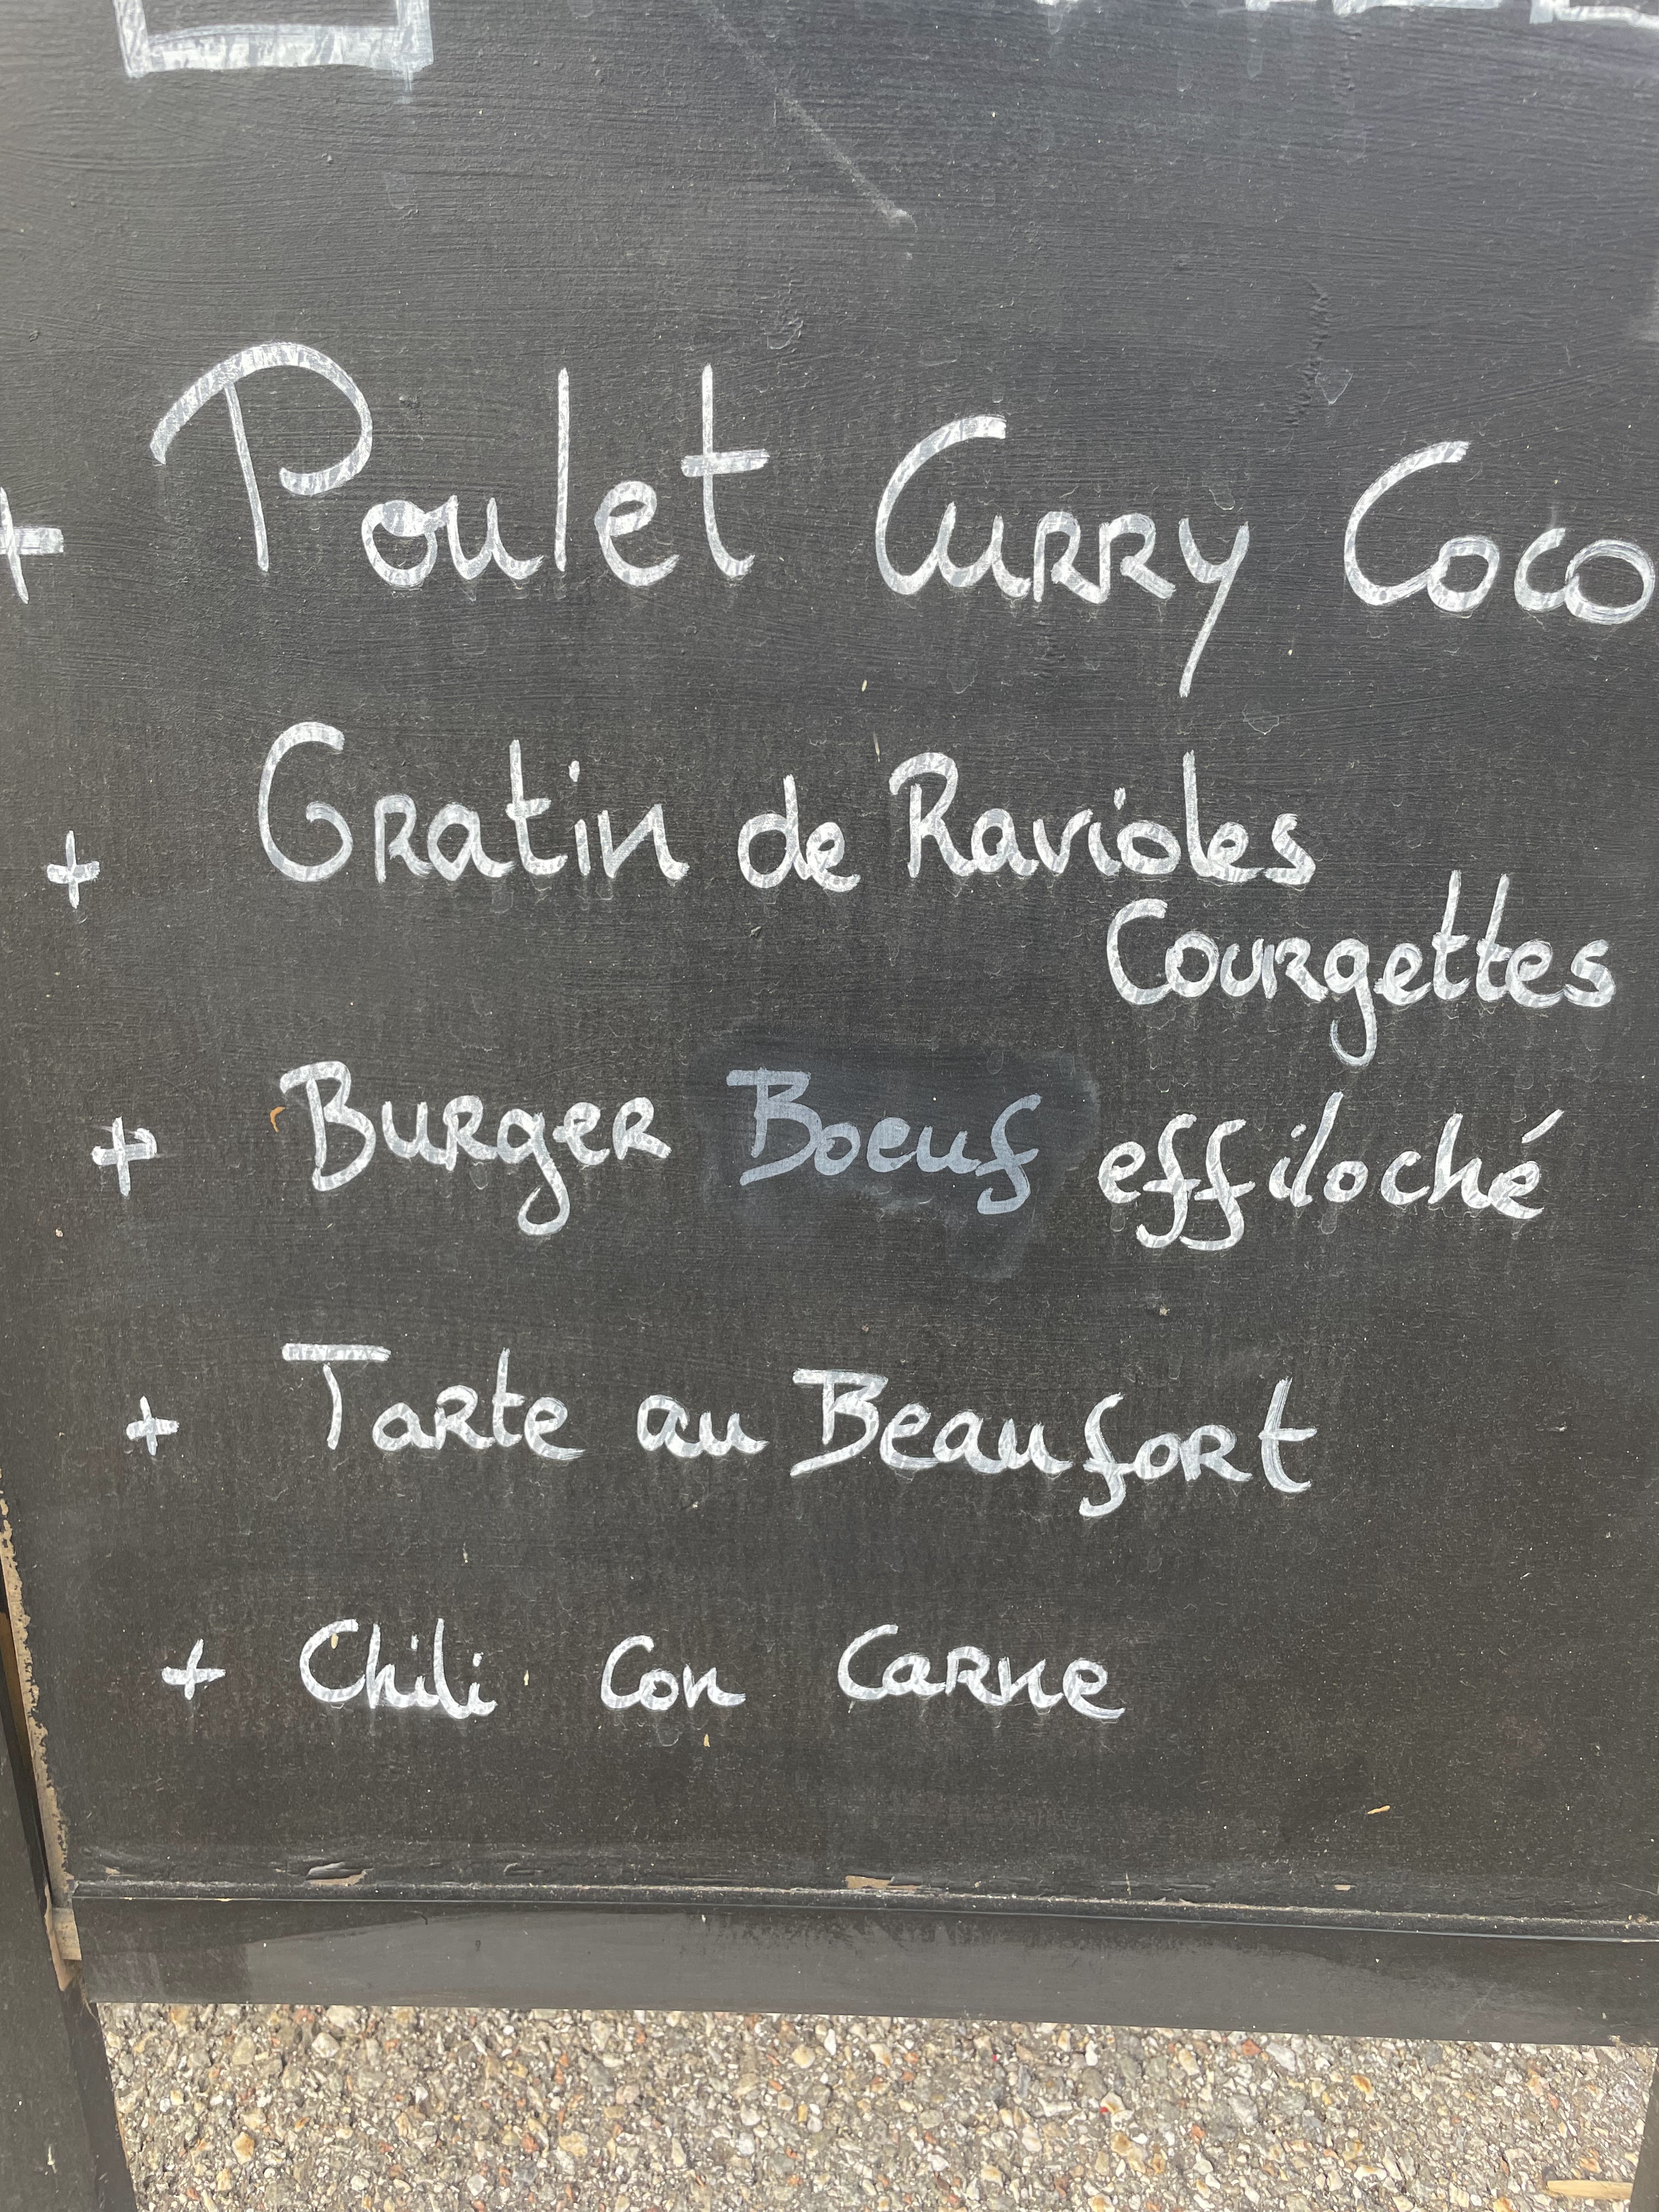 + Poulet Curry Coco
+ Gratin de Ravioles
Courgettes
+ Burger Boeuf effiloché
+ Tarte au Beaufort
+ Chili con carne